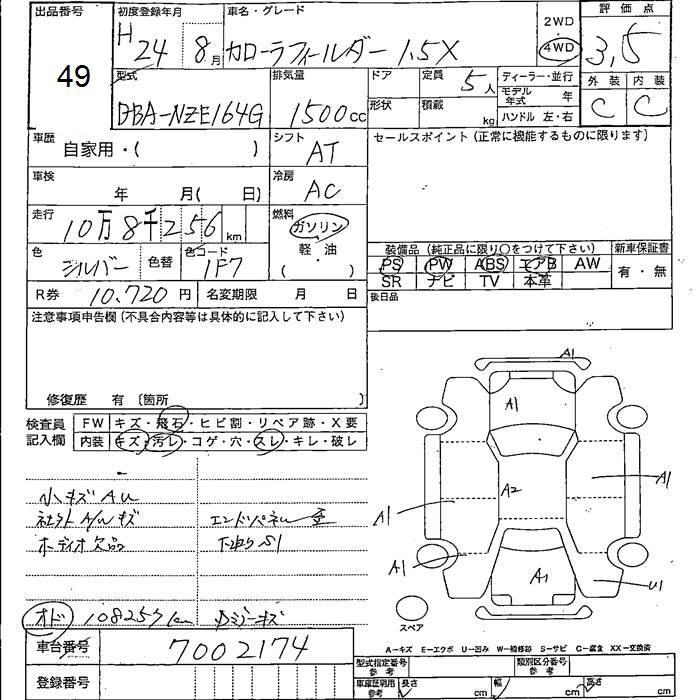 出品番号 初度登録年月 車名・グレード 2WD 評価点
49 H 24 8月 カローラフィールダー 1.5X 4WD 3,5
型式 排気量 ドア 定員 5人 ディーラー・並行 外装 内装
DBA-NZE164G 1500cc 形状 積載 kg モデル年式 年 C C
ハンドル 左・右
車歴 自家用・( ) シフト AT セールスポイント(正常に機能するものに限ります)
車検 年 月( 日) 冷房 AC
走行 10万8千256km 燃料 ガソリン
軽・油
( )
色 シルバー 色替 色コード 1F7
装備品(純正品に限り○をつけて下さい) 新車保証書
PS PW ABS エアB AW 有・無
SR ナビ TV 本革
R券 10,720円 名変期限 月 日 後日品
注意事項申告欄(不具合内容等は具体的に記入して下さい)
修復歴 有 〔箇所 〕
検査員記入欄 FW キズ・飛石・ヒビ割・リペア跡・X要
内装 キズ・汚レ・コゲ・穴・スレ・キレ・破レ
小キズ AU
社外A/Wキズ エンドパネル
オーディオ欠品 下廻りS1
オド 108257km
A1
A1
A2
A1
A1
A1
A1
U1
スペア
A-キズ E-エクボ U-凹み W-補修跡 S-サビ C-腐食 XX-交換済
車台番号 7002174
登録番号
型式指定番号 参考 類別区分番号 参考
車庫証明用 参考 長さ cm 幅 cm 高さ cm